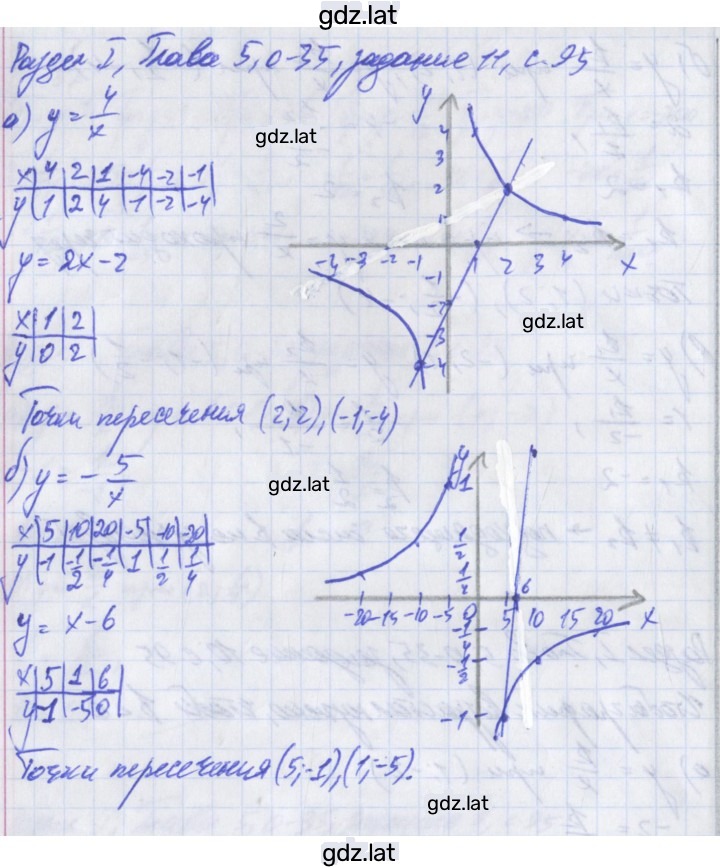 gdz.lat
Раздел I, Глава 5, о-35, задание 11, с. 95
а) y = 4/x
gdz.lat
x | 4 | 2 | 1 | -4 | -2 | -1
y | 1 | 2 | 4 | -1 | -2 | -4
y = 2x - 2
x | 1 | 2
y | 0 | 2
y
4
3
2
1
-4 -3 -2 -1 1 2 3 4 x
-1
-2
-3
-4
gdz.lat
Точки пересечения (2; 2), (-1; -4)
б) y = - 5/x
gdz.lat
x | 5 | 10 | 20 | -5 | -10 | -20
y | -1 | -1/2 | -1/4 | 1 | 1/2 | 1/4
y = x - 6
x | 5 | 1 | 6
y | -1 | -5 | 0
y
1
1/2
1/4
6
-20 -15 -10 -5 0 5 10 15 20 x
-1/4
-1/2
-1
Точки пересечения (5; -1), (1; -5).
gdz.lat
gdz.lat